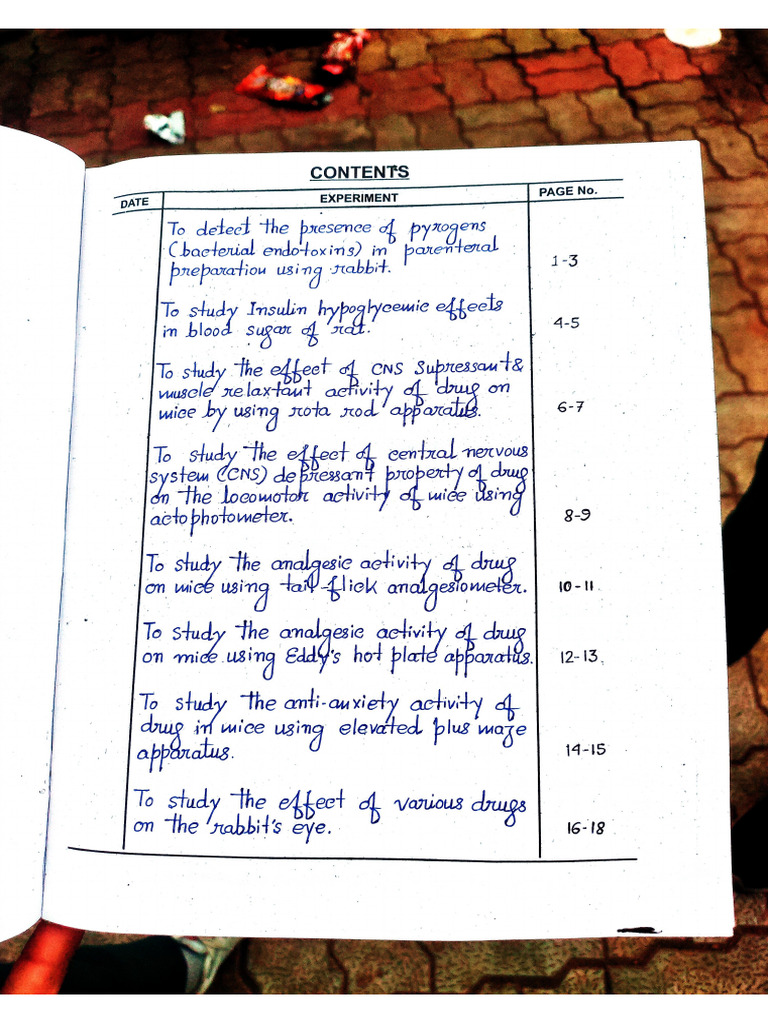 CONTENTS
DATE EXPERIMENT PAGE No.
To detect the presence of pyrogens
(bacterial endotoxins) in parenteral
preparation using rabbit. 1-3
To study Insulin hypoglycemic effects
in blood sugar of rat. 4-5
To study the effect of CNS Supressant &
muscle relaxtant activity of drug on
mice by using rota rod apparatus. 6-7
To study the effect of central nervous
system (CNS) depressant property of drug
on the locomotor activity of mice using
actophotometer. 8-9
To study the analgesic activity of drug
on mice using tail-flick analgesiometer. 10-11
To study the analgesic activity of drug
on mice using Eddy's hot plate apparatus. 12-13
To study the anti-anxiety activity of
drug in mice using elevated plus maze
apparatus. 14-15
To study the effect of various drugs
on the rabbit's eye. 16-18